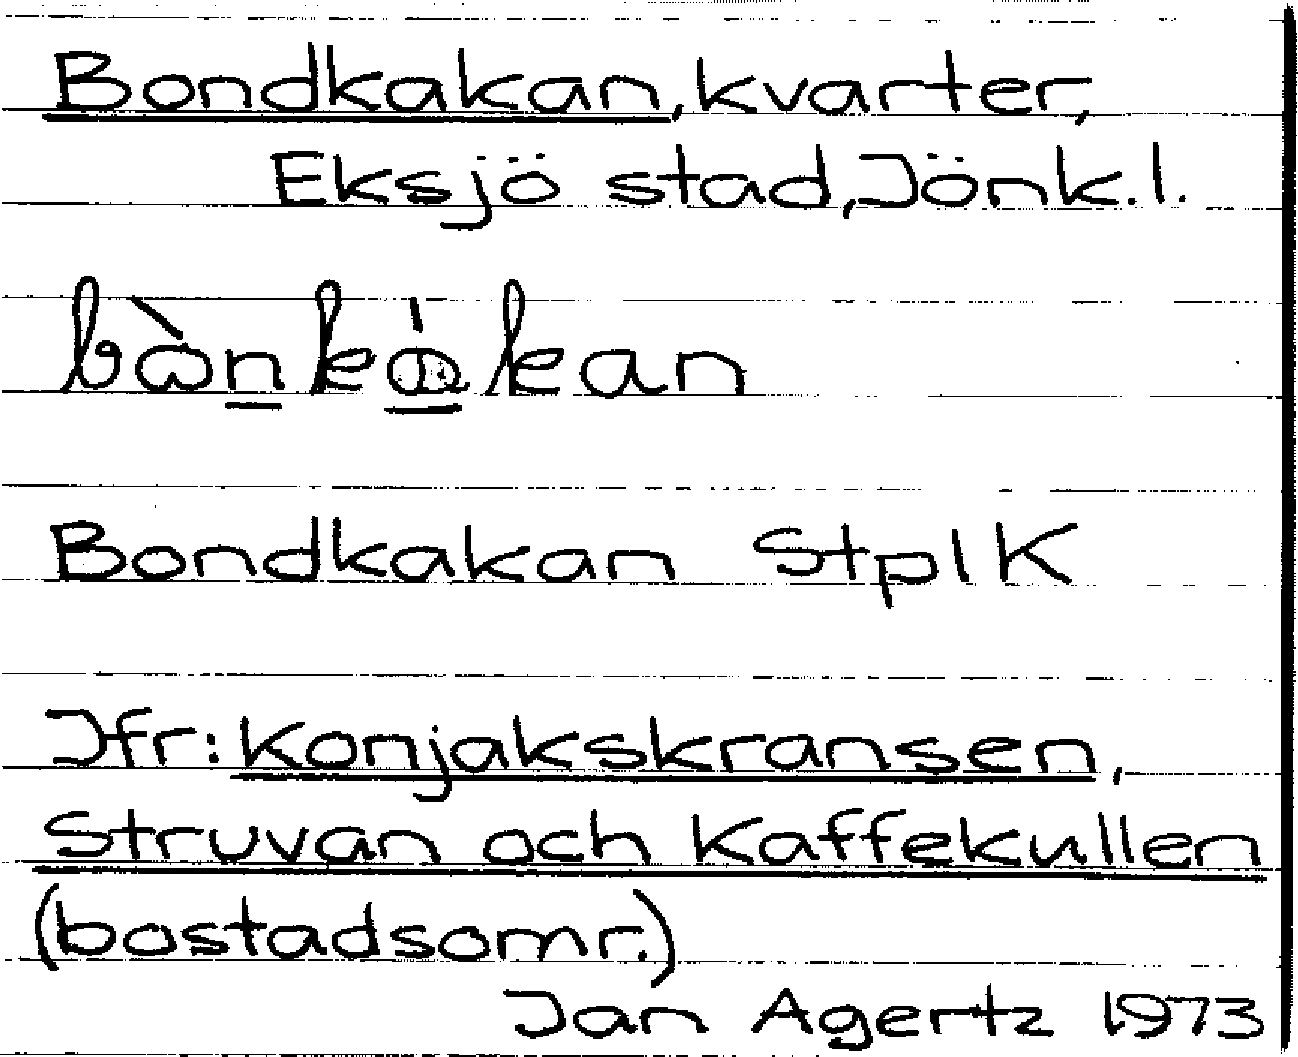 Bondkakan, kvarter,
Eksjö stad, Jönk.l.
Bondkakan StplK
Jfr: Konjakskransen,
Struvan och Kaffekullen
(bostadsomr.)
Jan Agertz 1973